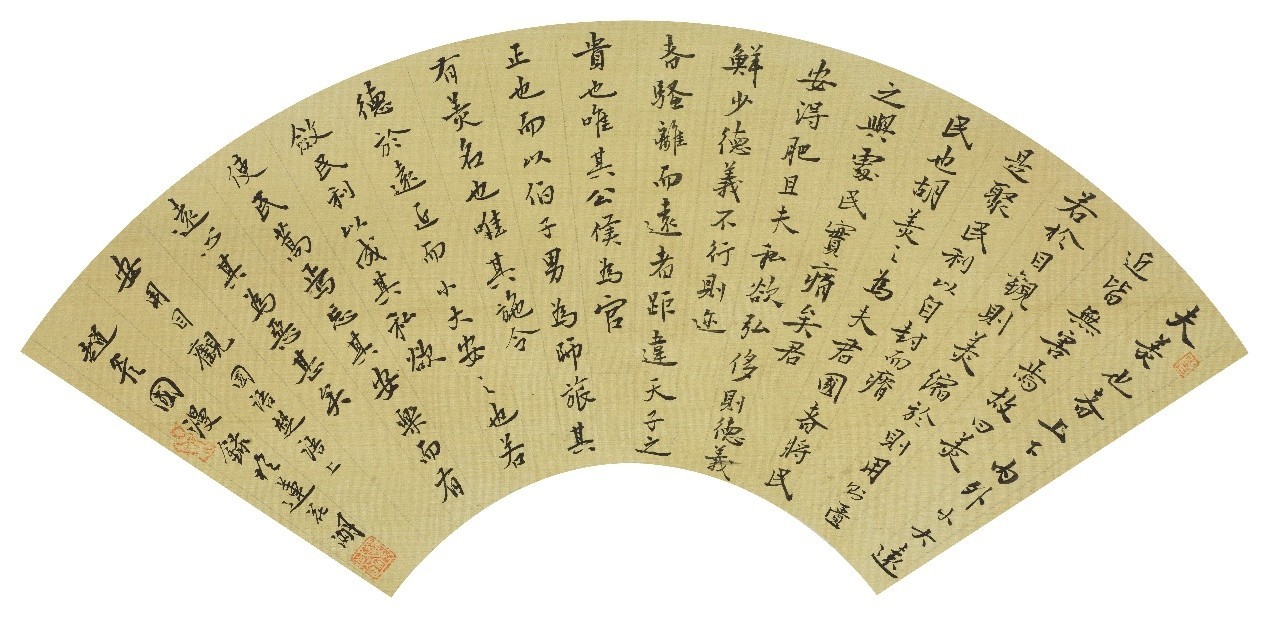 夫美也者上下內外小大遠
近皆無害焉故曰美
若於目觀則美縮於則用則匱
是聚民利以自封而瘠
民也胡美〻為夫君國者將民
之與處民實瘠矣君
安得肥且夫私欲弘侈則德義
鮮少德義不行則迩
者騷離而遠者距違天子之
貴也唯其公侯為官
正也而以伯子男為師旅其
有美名也唯其施令
德於遠近而小大安〻也若
斂民利以成其私欲
使民蒿焉忘其安樂而有
遠心其為惡甚矣
安用目觀 國語楚語上
趙國漫錄於蓮花湖